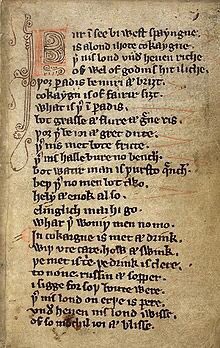 Fur ī see bi west spayngne
is a lond ihote cokaygne
þ̄ nis lond vnd̄ heuen riche
of wel of godnis hit iliche
þoȝ paradis be miri ⁊ briȝt
cokaygn is of fairir siȝt
what is þ̄ ī padis
bot grasse ⁊ flure ⁊ g̈ne ris
þoȝ þ̄ be ioi ⁊ gret dute
þ̄ nis met bote frute
þ̄ nis halle bure no benċh
bot watir man is þursto q̄nch
beþ þ̄ no men bot two
hely ⁊ enok also
elinglich mai hi go
whar þ̄ woniþ men no mo
In cokaigne is met ⁊ drink
wiþ vte care how ⁊ swink
þe met is trie þe drink is clere
to none russin ⁊ sopper
i sigge for soþ boute were
þ̄ nis lond on erþe is pere
vnd̄ heuen nis lond iwisse
of so mochil ioi ⁊ blisse